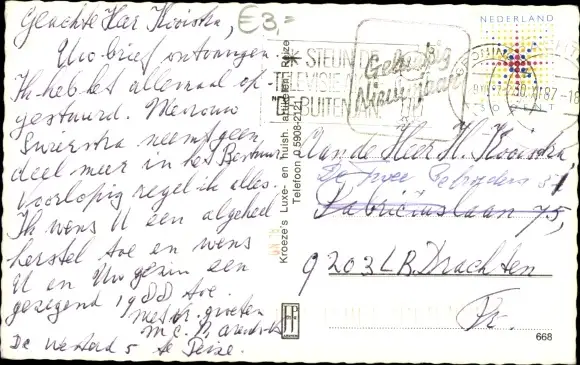 Geachte Heer Kooistra,
€3,=
Uw brief ontvangen.
Ik heb het allemaal op-
gestuurd. Mevrouw
neemt geen
deel meer in het Bestuur
Voorlopig regel ik alles.
Ik wens U een algeheel
herstel toe en wens
U en Uw gezin een
gezegend 1988 toe.
met vr. groeten
M C.
De 5 te Peize.
STEUN DE
TELEVISIE
BUITENJAN
Gelukkig
Nieuwjaar
NEDERLAND
30.XII.87-18
50 CENT
Kroeze's Luxe- en huish. artikelen Peize
Telefoon 05908-2121
Aan de Heer H. Kooistra,
De twee Gebroeders 31
Fabriciuslaan 75,
9203LB Drachten
Fr.
668